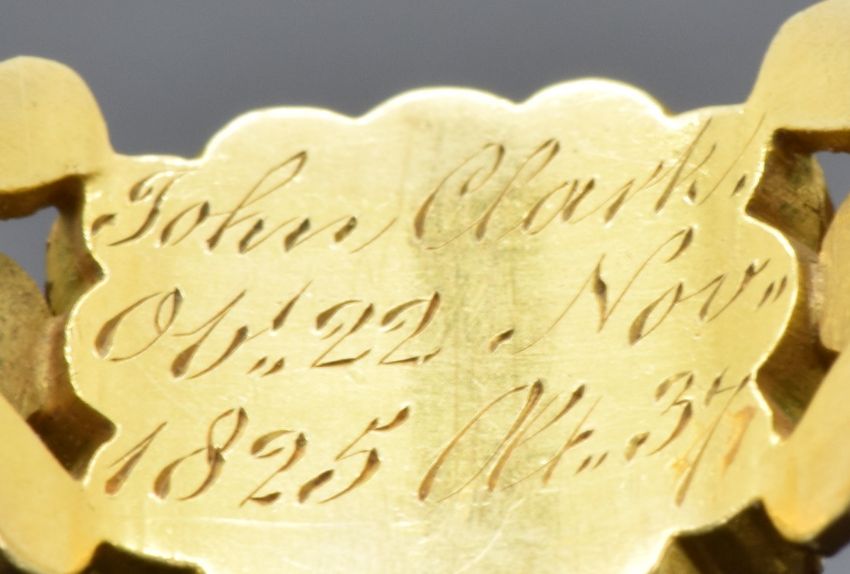 John Clark.
Obt. 22 Nov.
1825 Æt. 37